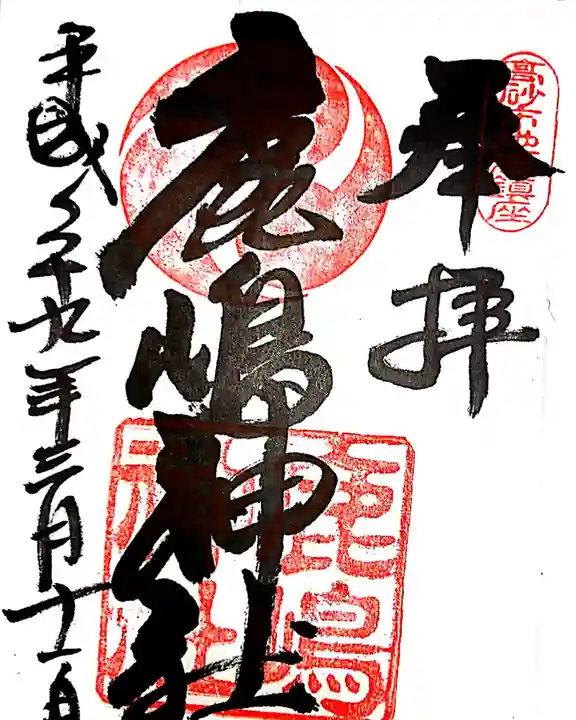 奉拝
高砂市地鎮座
鹿嶋神社
鹿嶋神社
平成二十九年三月十一日